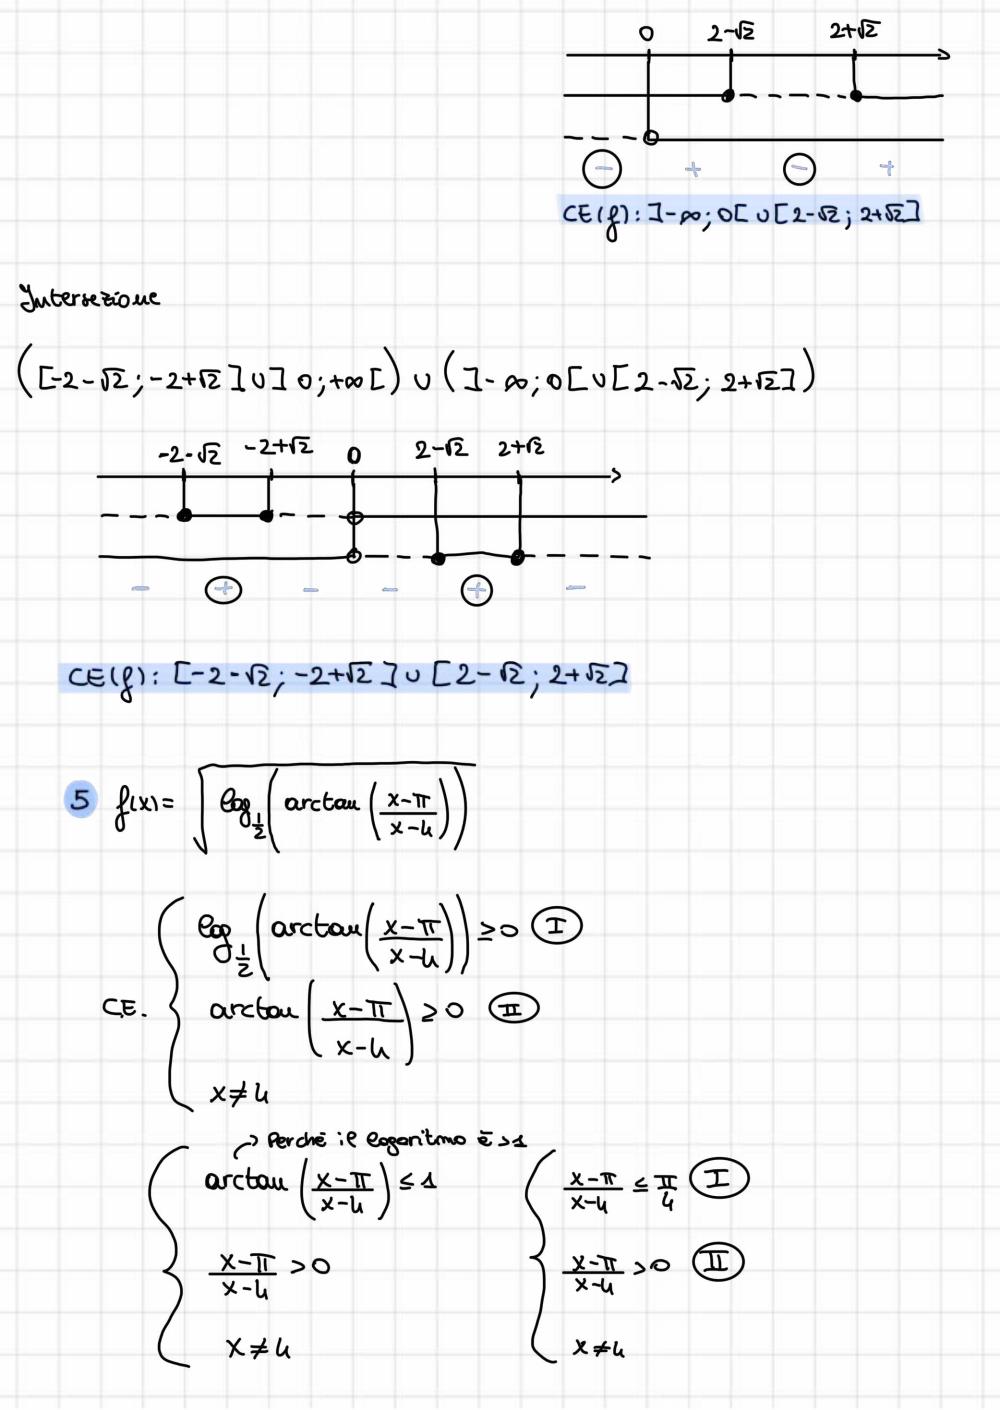 0 2-√2 2+√2
- + - +
CE(f): ]-∞; 0[ ∪ [2-√2; 2+√2]
Intersezione
([-2-√2; -2+√2] ∪ ]0; +∞[) ∪ (]-∞; 0[ ∪ [2-√2; 2+√2])
-2-√2 -2+√2 0 2-√2 2+√2
- + - - + -
CE(f): [-2-√2; -2+√2] ∪ [2-√2; 2+√2]
5 f(x)= √(log_{1/2}(arctan((x-π)/(x-4))))
log_{1/2}(arctan((x-π)/(x-4))) ≥ 0 I
C.E. arctan((x-π)/(x-4)) ≥ 0 II
x≠4
→ Perché il logaritmo è >1
arctan((x-π)/(x-4)) ≤ 1 (x-π)/(x-4) ≤ π/4 I
(x-π)/(x-4) > 0 (x-π)/(x-4) > 0 II
x≠4 x≠4